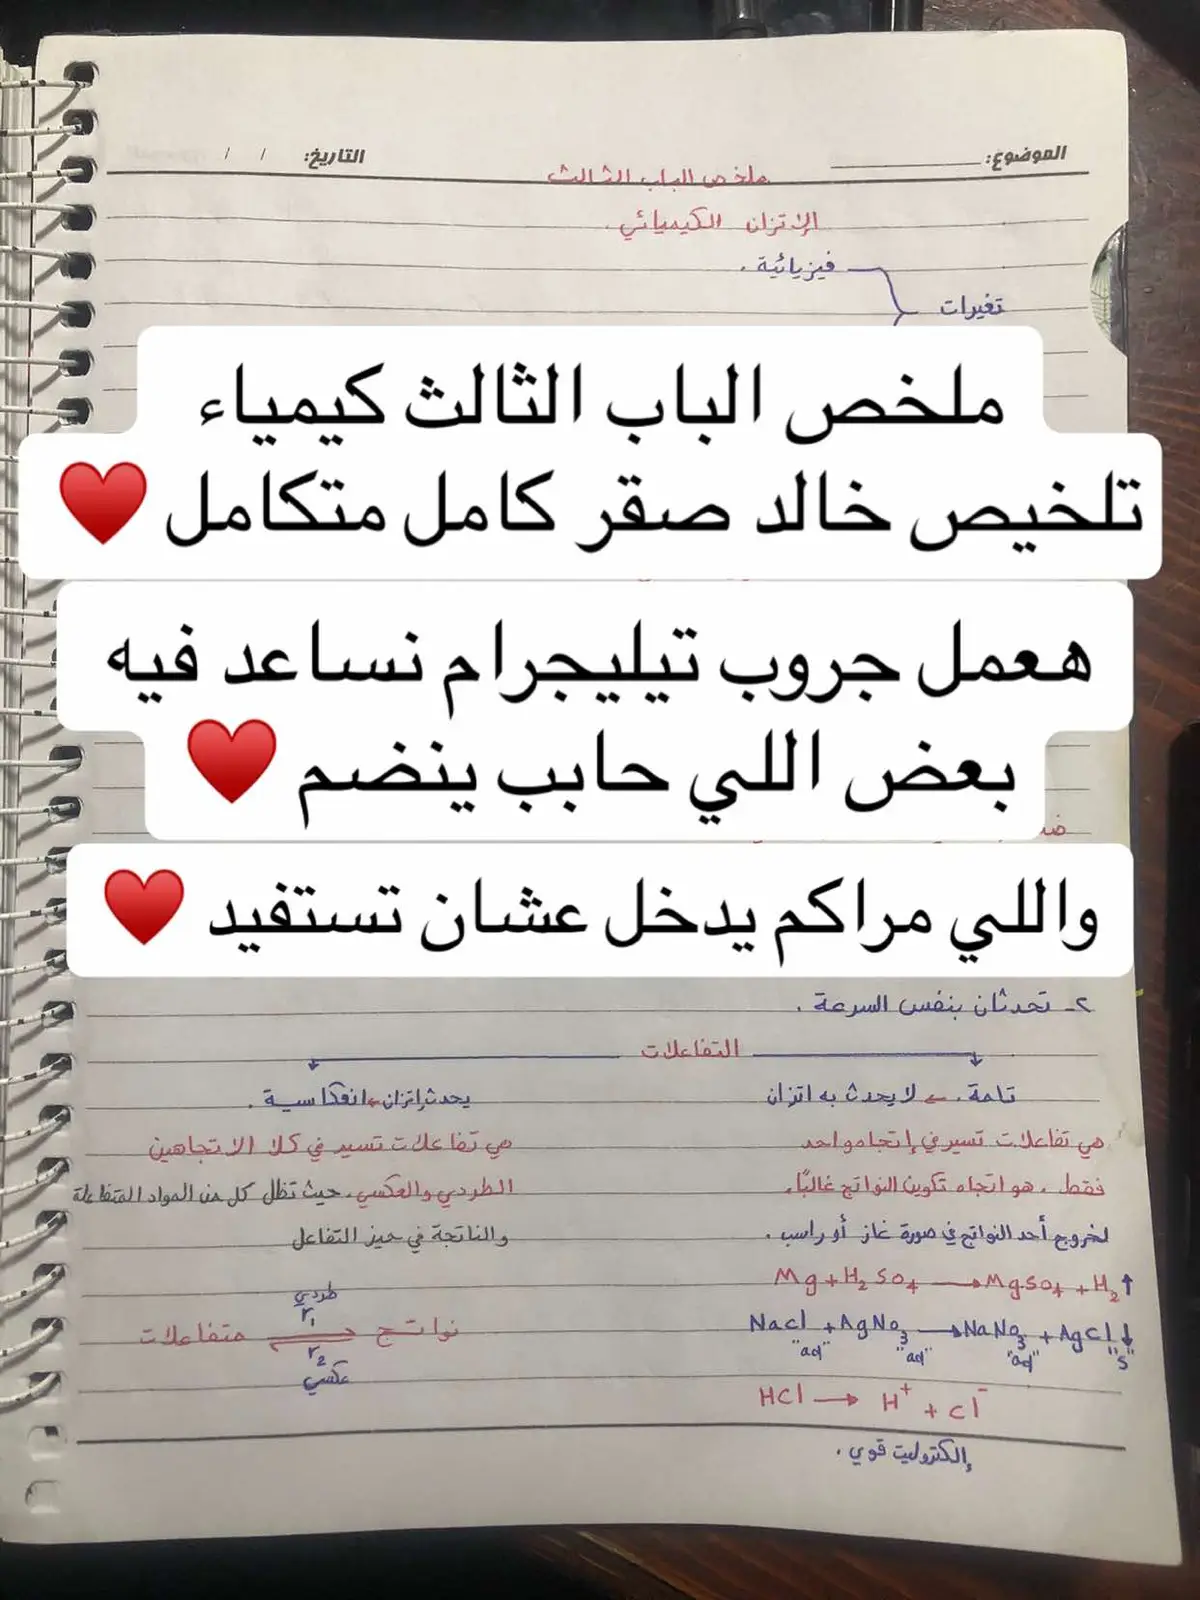 الموضوع: التاريخ: / /
ملخص الباب الثالث
الإتزان الكيميائي.
فيزيائية.
تغيرات
ملخص الباب الثالث كيمياء
تلخيص خالد صقر كامل متكامل ♥
هعمل جروب تيليجرام نساعد فيه
بعض اللي حابب ينضم ♥
واللي مراكم يدخل عشان تستفيد ♥
٢- تحدثان بنفس السرعة.
التفاعلات
تامة. ← لا يحدث به اتزان
هي تفاعلات تسير في إتجاه واحد
فقط. هو اتجاه تكوين النواتج غالبًا.
لخروج أحد النواتج في صورة غاز أو راسب.
Mg + H₂SO₄ → MgSO₄ + H₂↑
NaCl + AgNO₃ → NaNO₃ + AgCl↓
"aq" "aq" "aq" "s"
HCl → H⁺ + Cl⁻
إلكتروليت قوي.
يحدث إتزان ← انعكاسية.
هي تفاعلات تسير في كلا الاتجاهين
الطردي والعكسي. حيث تظل كل من المواد المتفاعلة
والناتجة في حيز التفاعل
طردي
r₁
متفاعلات ⇌ نواتج
r₂
عكسي